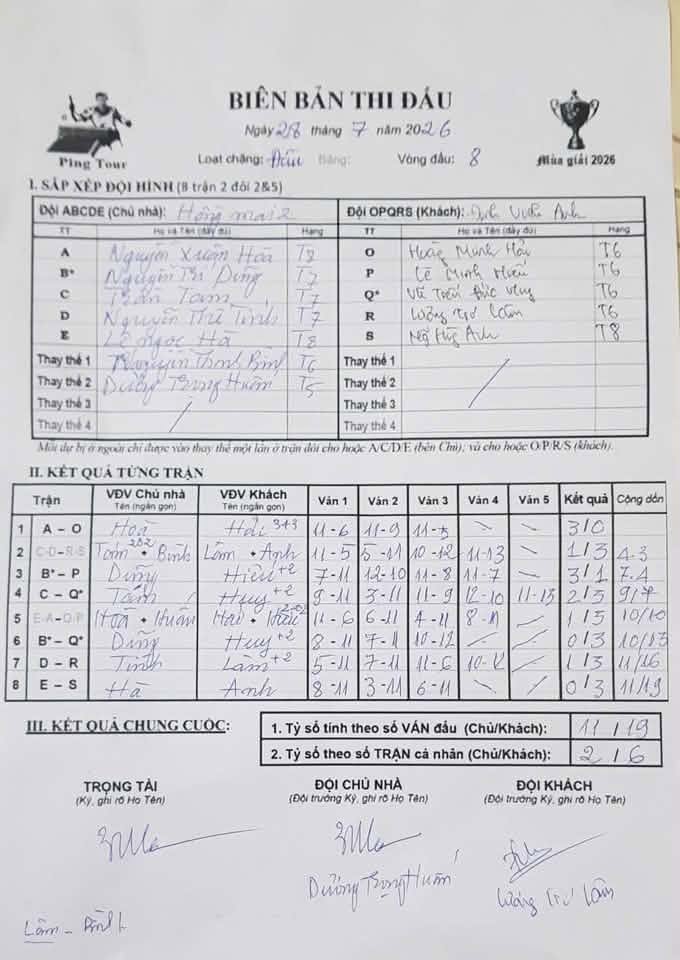 BIÊN BẢN THI ĐẤU
Ngày 28 tháng 7 năm 2026
Ping Tour
Loại chặng: Đấu Bảng: Vòng đấu: 8
Mùa giải 2026
I. SẮP XẾP ĐỘI HÌNH (8 trận 2 đôi 2&5)
Đội ABCDE (Chủ nhà): Hồng mai 2 Đội OPQRS (Khách): Anh
TT Họ và Tên (đầy đủ) Hạng TT Họ và Tên (đầy đủ) Hạng
A Nguyễn Xuân Hoà T8 O Hoàng Minh Hải T6
B* Nguyễn Trí Dũng T7 P Lê Minh Hiếu T6
C Trần Tám T7 Q* Vũ Đức T6
D Nguyễn Thế Tính T7 R Lương Trí Lâm T6
E Lê Ngọc Hà T8 S Anh T8
Thay thế 1 Nguyễn Thanh Bình T6 Thay thế 1
Thay thế 2 Dương Trọng Huấn T5 Thay thế 2
Thay thế 3 / Thay thế 3 /
Thay thế 4 Thay thế 4
Mỗi dự bị ở ngoài chỉ được vào thay thế một lần ở trận đôi cho hoặc A/C/D/E (bên Chủ); và cho hoặc O/P/R/S (khách).
II. KẾT QUẢ TỪNG TRẬN
Trận VĐV Chủ nhà Tên (ngắn gọn) VĐV Khách Tên (ngắn gọn) Ván 1 Ván 2 Ván 3 Ván 4 Ván 5 Kết quả Cộng dồn
1 A – O Hoà Hải 11-6 11-9 11-5 - - 3/0
2 C-D-R-S Tám • Bình Lâm • Anh 11-5 5-11 10-12 11-13 - 1/3 4-3
3 B* – P Dũng Hiếu +2 7-11 12-10 11-8 11-7 - 3/1 7-4
4 C – Q* Tám Huy +2 9-11 3-11 11-9 12-10 11-13 2/3 9/7
5 E-A-O-P Hoà • Huấn Hải • Hiếu 11-6 6-11 4-11 8-11 - 1/3 10/10
6 B* – Q* Dũng Huy +2 8-11 7-11 10-12 - - 0/3 10/13
7 D – R Tính Lâm +2 5-11 7-11 11-6 10-12 - 1/3 11/16
8 E – S Hà Anh 8-11 3-11 6-11 - - 0/3 11/19
III. KẾT QUẢ CHUNG CUỘC:
1. Tỷ số tính theo số VÁN đấu (Chủ/Khách): 11/19
2. Tỷ số theo số TRẬN cá nhân (Chủ/Khách): 2/6
TRỌNG TÀI ĐỘI CHỦ NHÀ ĐỘI KHÁCH
(Ký, ghi rõ Họ Tên) (Đội trưởng Ký, ghi rõ Họ Tên) (Đội trưởng Ký, ghi rõ Họ Tên)
Dương Trọng Huấn Lương Trí Lâm
Lâm -